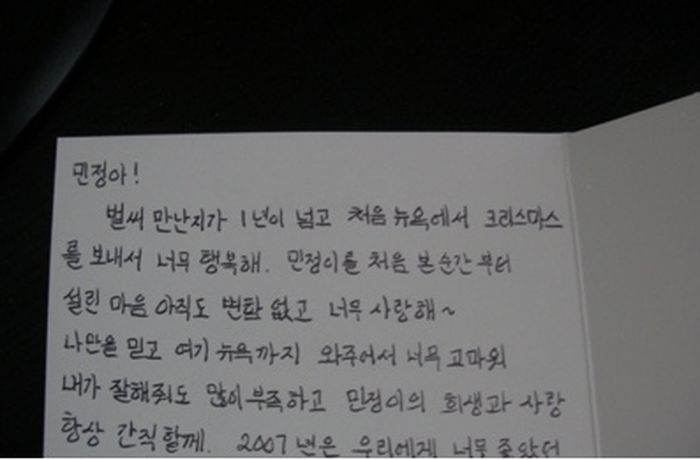 민정아!
벌써 만난지가 1년이 넘고 처음 뉴욕에서 크리스마스
를 보내서 너무 행복해. 민정이를 처음 본 순간 부터
설린 마음 아직도 변함 없고 너무 사랑해~
나만을 믿고 여기 뉴욕까지 와주어서 너무 고마워
내가 잘해줘도 많이 부족하고 민정이의 희생과 사랑
항상 간직 할께. 2007년은 우리에게 너무 좋았던